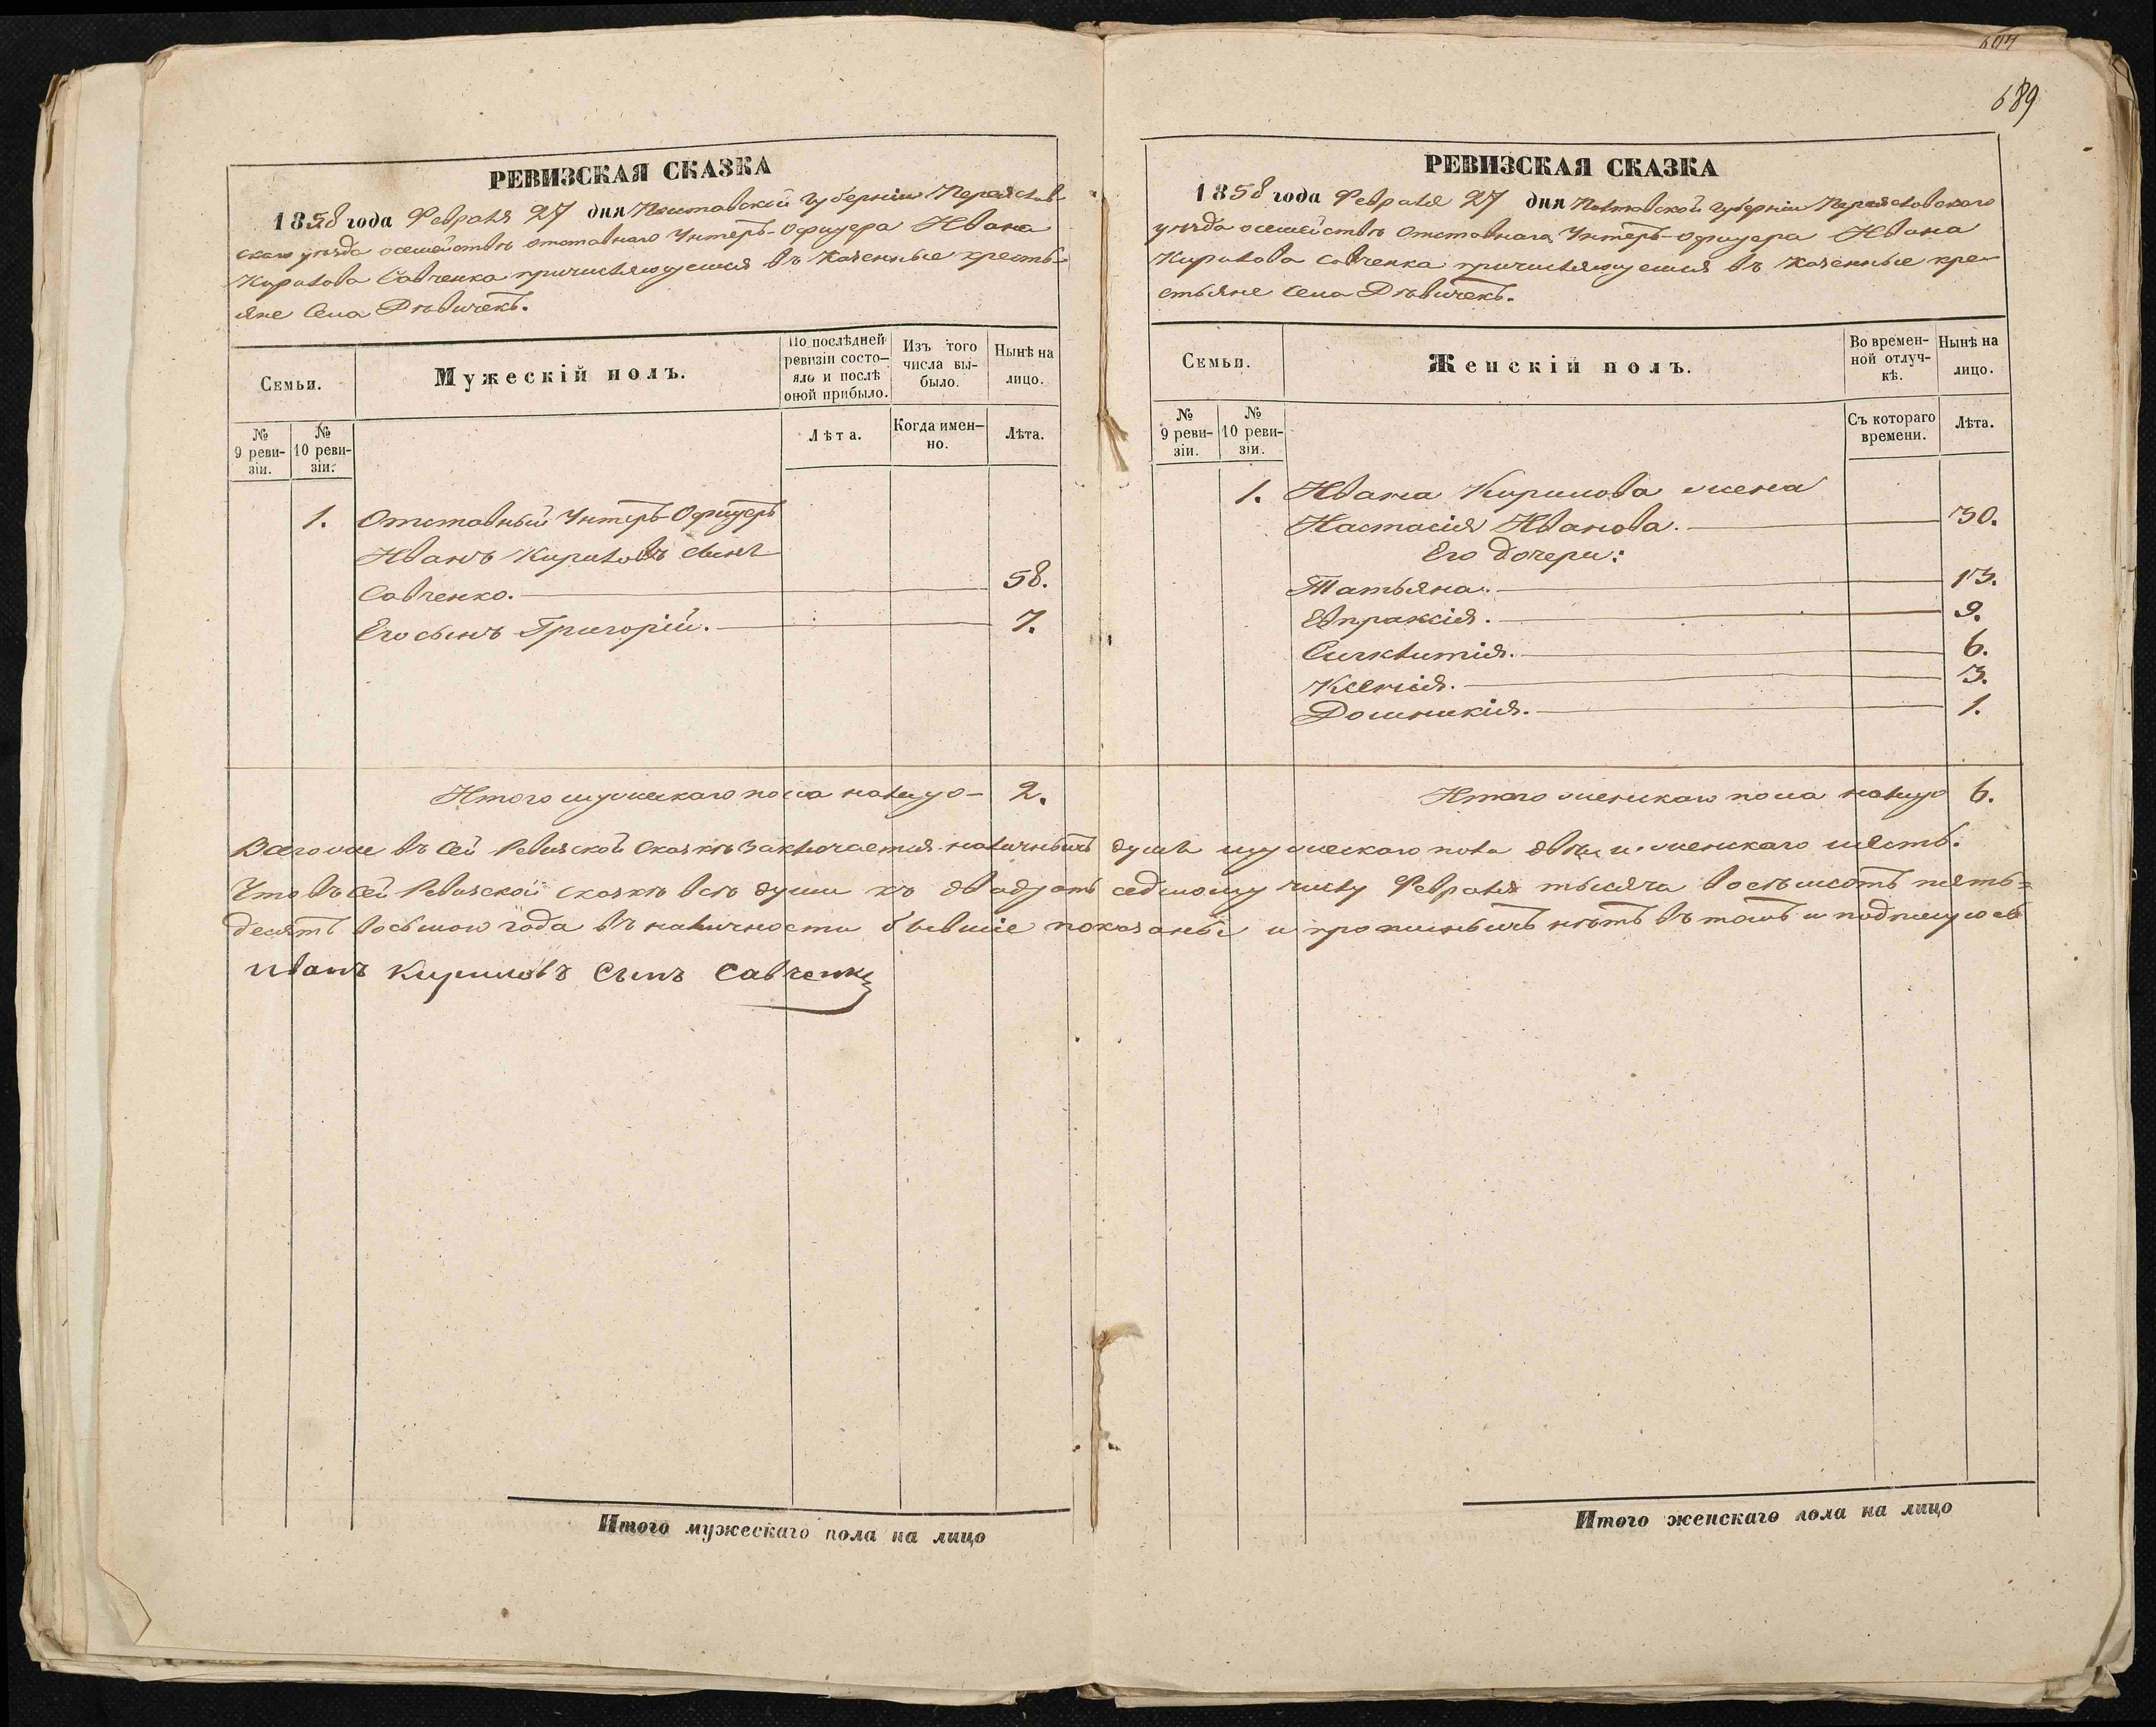 689
РЕВИЗСКАЯ СКАЗКА
1858 года Февраля 27 дня Полтавской Губерніи Переяслав-
скаго уѣзда о семействѣ отставнаго Унтеръ-Офицера Ивана
Кирилова Савченка причисляющемся въ Казенные кресть-
яне Села Дѣвичекъ.
Семьи.
Мужескій полъ.
По послѣдней ревизіи состо-яло и послѣ оной прибыло.
Изъ того числа вы-было.
Нынѣ на лицо.
№ 9 реви-зіи.
№ 10 реви-зіи.
Лѣта.
Когда имен-но.
Лѣта.
1. Отставный Унтеръ-Офицеръ
Иванъ Кириловъ сынъ
Савченко. 58.
Его сынъ Григорій. 7.
Итого мужескаго пола налицо 2.
РЕВИЗСКАЯ СКАЗКА
1858 года Февраля 27 дня Полтавской Губерніи Переяславскаго
уѣзда о семействѣ Отставнаго Унтеръ-Офицера Ивана
Кирилова Савченка причисляющемся въ Казенные кре-
стьяне Села Дѣвичекъ.
Семьи.
Женскій полъ.
Во времен-ной отлуч-кѣ.
Нынѣ на лицо.
№ 9 реви-зіи.
№ 10 реви-зіи.
Съ котораго времени.
Лѣта.
1. Ивана Кирилова жена
Настасія Иванова. 30.
Его дочери:
Татьяна. 13.
Евпраксія. 9.
Синклитія. 6.
Ксенія. 3.
Домникія. 1.
Итого женскаго пола налицо 6.
Всего же въ сей Ревизской Сказкѣ заключается наличныхъ душъ мужескаго пола двѣ и женскаго шесть.
Что въ сей Ревизской сказкѣ всѣ души къ двадцать седмому числу Февраля тысяча восемьсотъ пять=
десятъ восьмого года въ наличности бывшіе показаны и прописныхъ нѣтъ въ томъ и подпишуюсь
Иванъ Кириловъ Сынъ Савченко
Итого мужескаго пола на лицо
Итого женскаго пола на лицо